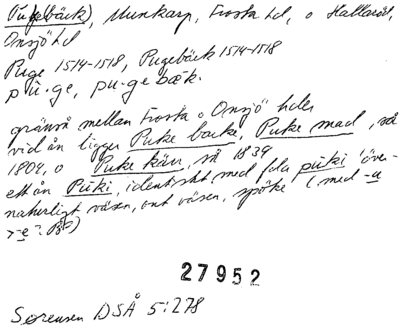 (Pukebäck), Munkarp, Frosta hd, o Hallaröd,
Onsjö hd
Puge 1514-1518, Pugebäck 1514-1518
pū·ge, pu·ge bæk.
gränså mellan Frosta o Onsjö hder
vid ån ligger Puke backe, Puke mad, så
1804, o Puke kärr, så 1839
ett ån Puki, identiskt med fda pūki 'över-
naturligt väsen, ont väsen, spöke' (med -u
>-e?)
27952
Sørensen DSÅ 5:278